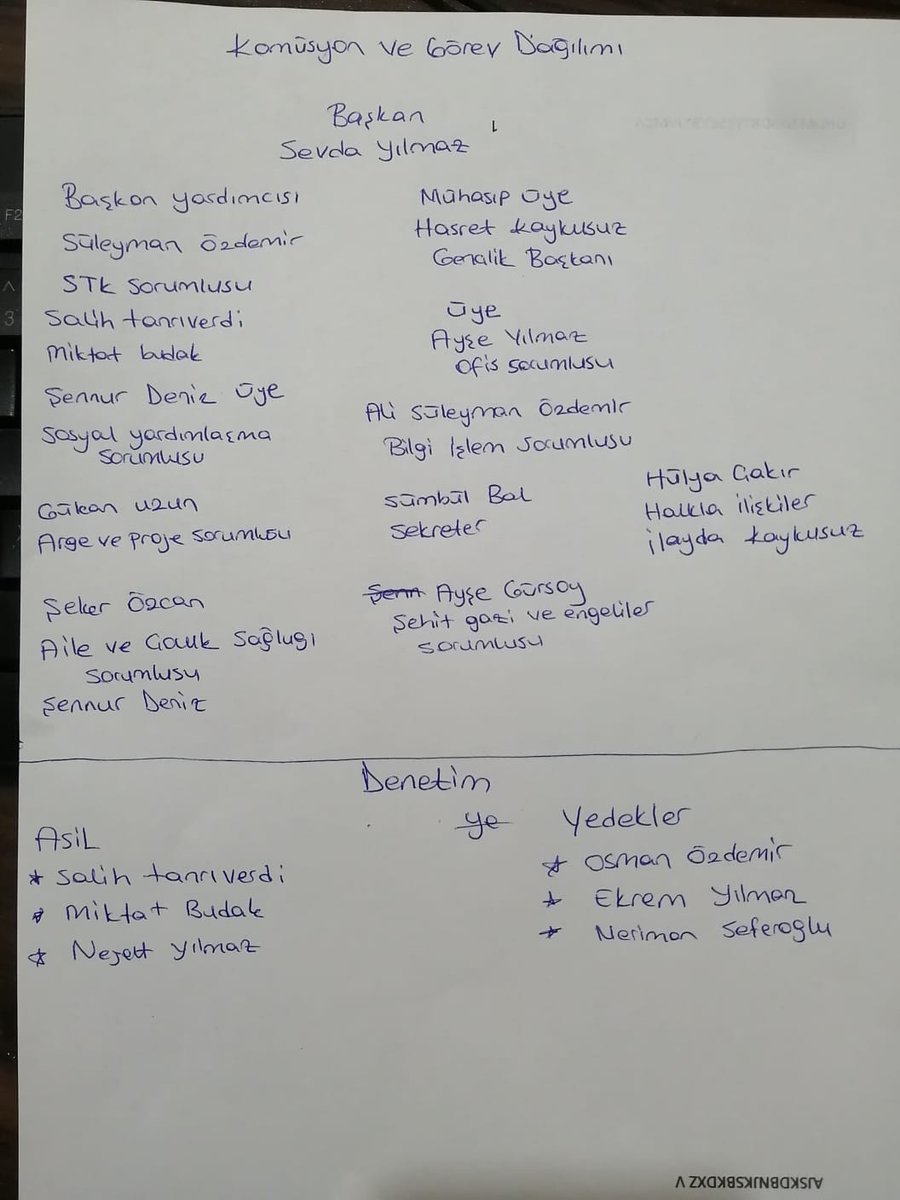 Komüsyon ve Görev Dağılımı
Başkan
Sevda Yılmaz
Başkan yardımcısı
Süleyman Özdemir
STK Sorumlusu
Salih tanrıverdi
Miktat budak
Şennur Deniz Üye
Sosyal yardımlaşma
sorumlusu
Gükan uzun
Arge ve proje sorumlusu
Şeker Özcan
Aile ve Çocuk Sağlugı
sorumlusu
Şennur Deniz
Mühasıp üye
Hasret kaykusuz
Gençlik Başkanı
Üye
Ayşe Yılmaz
Ofis sorumlusu
Ali Süleyman Özdemir
Bilgi İşlem sorumlusu
Sümbül Bal
Sekreter
Ayşe Gürsoy
Şehit gazi ve engeliler
sorumlusu
Hülya Çakır
Halkla ilişkiler
ilayda kaykusuz
Denetim
Asil
* Salih tanrıverdi
* Miktat Budak
* Neşett yılmaz
ye Yedekler
* Osman Özdemir
* Ekrem Yılmaz
* Neriman Seferoglu
AJSKDBNJKSBKDXZ V